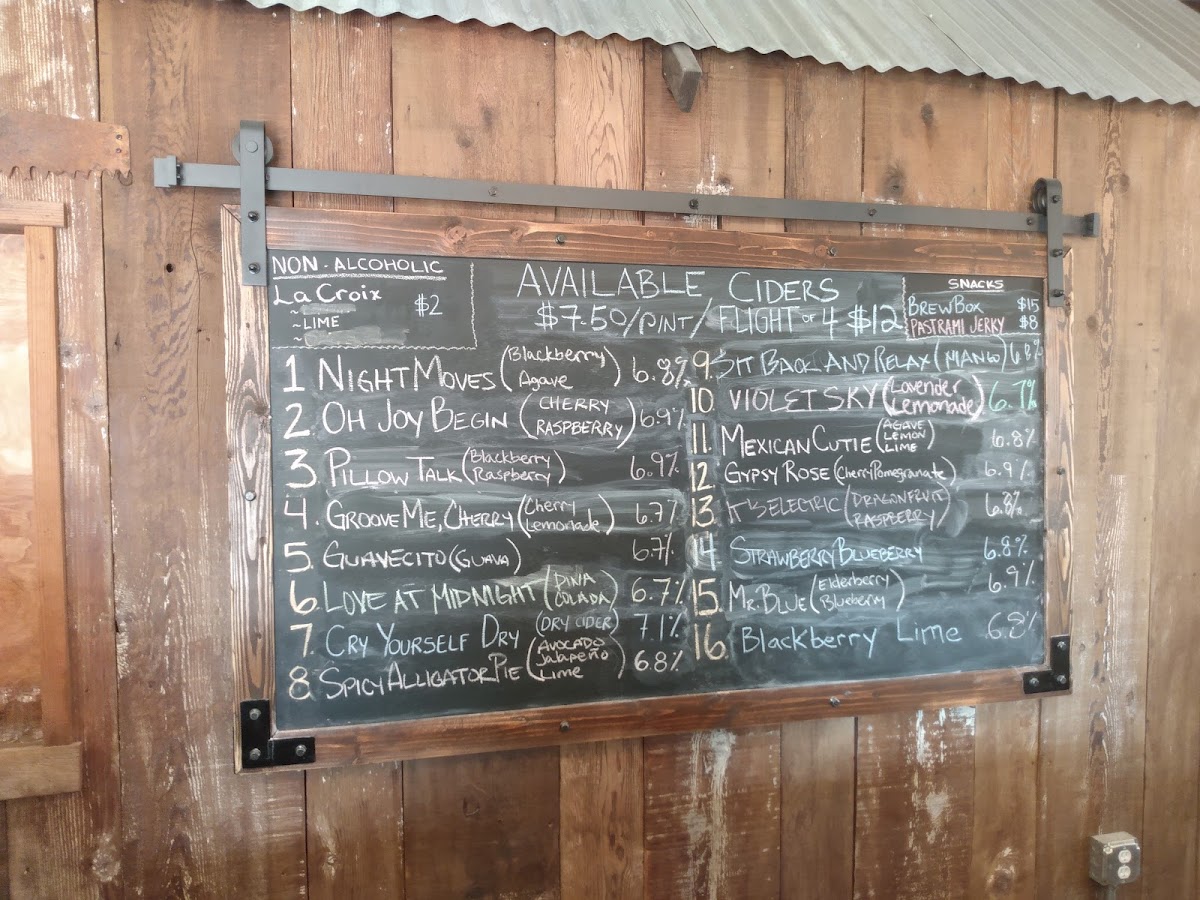 NON-ALCOHOLIC
La Croix $2
~
~ LIME
~
AVAILABLE CIDERS
$7.50/PINT/FLIGHT OF 4 $12
SNACKS
BREWBOX $15
PASTRAMI JERKY $8
1 NIGHT MOVES (Blackberry Agave) 6.8%
2 OH JOY BEGIN (CHERRY RASPBERRY) 6.9%
3 PILLOW TALK (Blackberry Raspberry) 6.9%
4. GROOVE ME, CHERRY (Cherry Lemonade) 6.7%
5. GUAVECITO (GUAVA) 6.7%
6. LOVE AT MIDNIGHT (PINA COLADA) 6.7%
7. CRY YOURSELF DRY (DRY CIDER) 7.1%
8. SPICY ALLIGATOR PIE (AVOCADO Jalapeño Lime) 6.8%
9. SIT BACK AND RELAX (MANGO) 6.8%
10. VIOLET SKY (Lavender Lemonade) 6.7%
11. MEXICAN CUTIE (AGAVE LEMON LIME) 6.8%
12 GYPSY ROSE (Cherry Pomegranate) 6.9%
13. IT'S ELECTRIC (DRAGONFRUIT RASPBERRY) 6.8%
14 STRAWBERRY BLUEBERRY 6.8%
15. MR. BLUE (Elderberry Blueberry) 6.9%
16. Blackberry Lime 6.8%